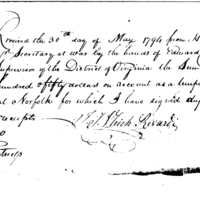 Received the 30th day of May 1794 from H
Secretary at war by the hands of Edward
Supervisor of the District of Virginia the Sum
hundred & fifty dollars on account as a temp
at Norfolk for which I have signed dup
receipts
Jn Ulrich Rivardi